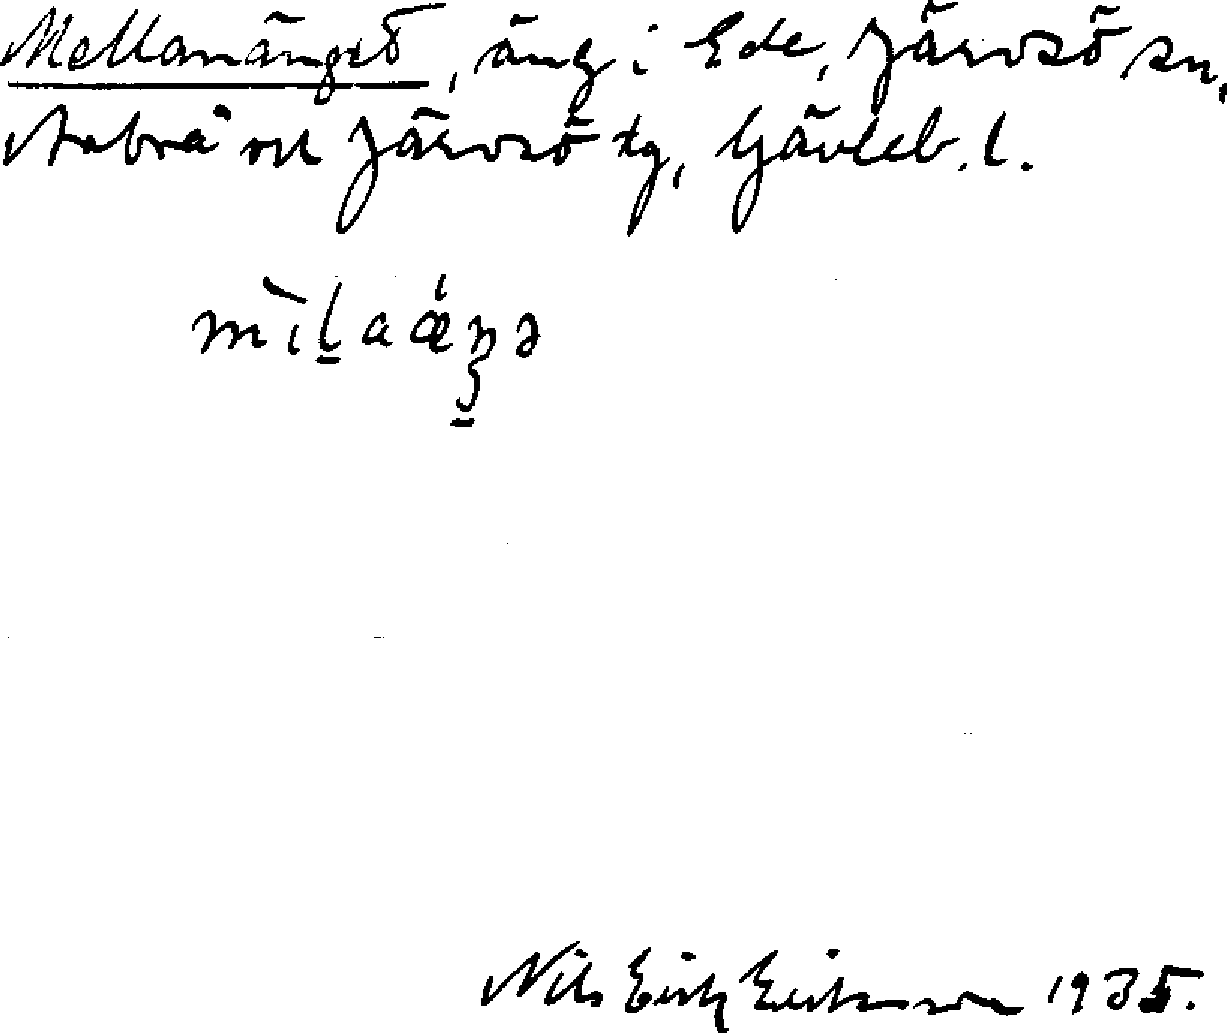 Mellanänget, äng i Ede, Järvsö sn,
Arbrå o Järvsö tg, Gävleb. l.
Nils Erik Eriksson 1935.